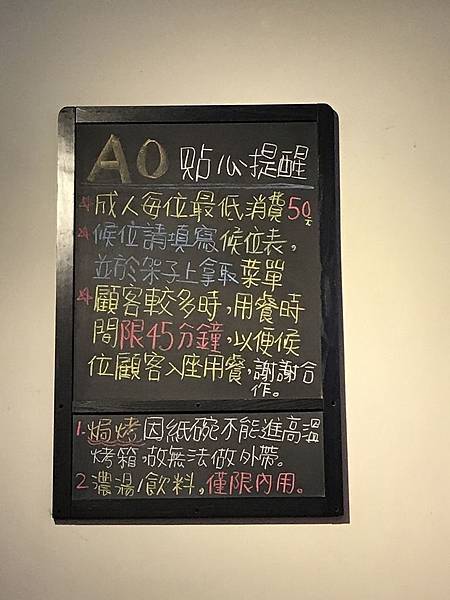 AO 貼心提醒
☆成人每位最低消費50元
☆候位請填寫候位表,
並於架子上拿取菜單
☆顧客較多時,用餐時
間限45分鐘,以便候
位顧客入座用餐,謝謝合
作。
1.焗烤因紙碗不能進高溫
烤箱,故無法做外帶。
2.濃湯/飲料,僅限內用。